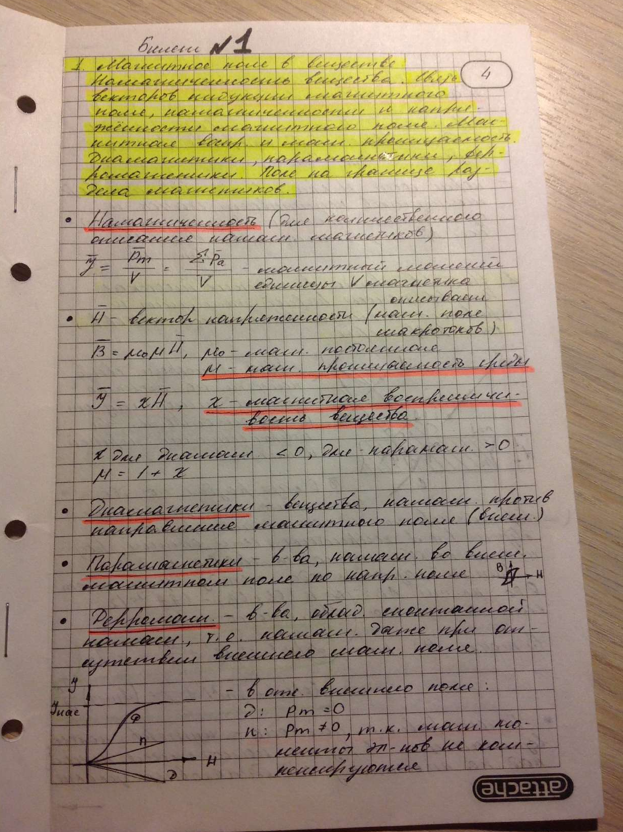 Билет №1
4
1. Магнитное поле в веществе
Намагниченность вещества. Связь
векторов индукции магнитного
поля, намагниченности и напря-
жённости магнитного поля. Маг-
нитная воспр. и магн. проницаемость.
Диамагнетики, парамагнетики, фер-
ромагнетики. Поле на границе раз-
дела магнетиков.
• Намагниченность (для количественного
описания намагн. магнетиков)
J̄ = P̄m/V = ΣPa/V - магнитный момент
единицы V магнетика
• H̄ - вектор напряженности (описывает
магн. поле
макротоков)
B̄ = μ₀μH̄, μ₀ - магн. постоянная
μ - магн. проницаемость среды
J̄ = xH̄, x - магнитная восприимчи-
вость вещества
x для диамагн. < 0, для парамагн. > 0
μ = 1 + x
• Диамагнетики - вещества, намагн. против
направления магнитного поля (внеш.)
• Парамагнетики - в-ва, намагн. во внеш.
магнитном поле по напр. поля
B H
• Ферромагн - в-ва, облад. спонтанной
намагн, т.е. намагн. даже при от-
сутствии внешнего магн. поля.
J
Jнас
Ф
п
H
Д
- в отс. внешнего поля:
д: Pm = 0
п: Pm ≠ 0, т.к. магн. мо-
менты эл-нов не ком-
пенсируются
attache